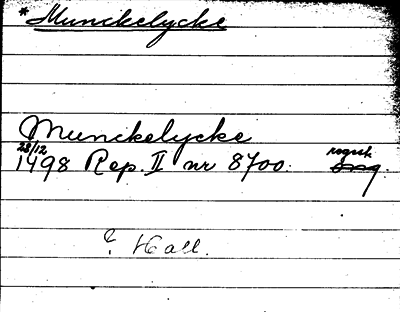 *Munckelycke
Munckelycke
28/12
1498 Rep. II nr 8700. orig.
? Hall.